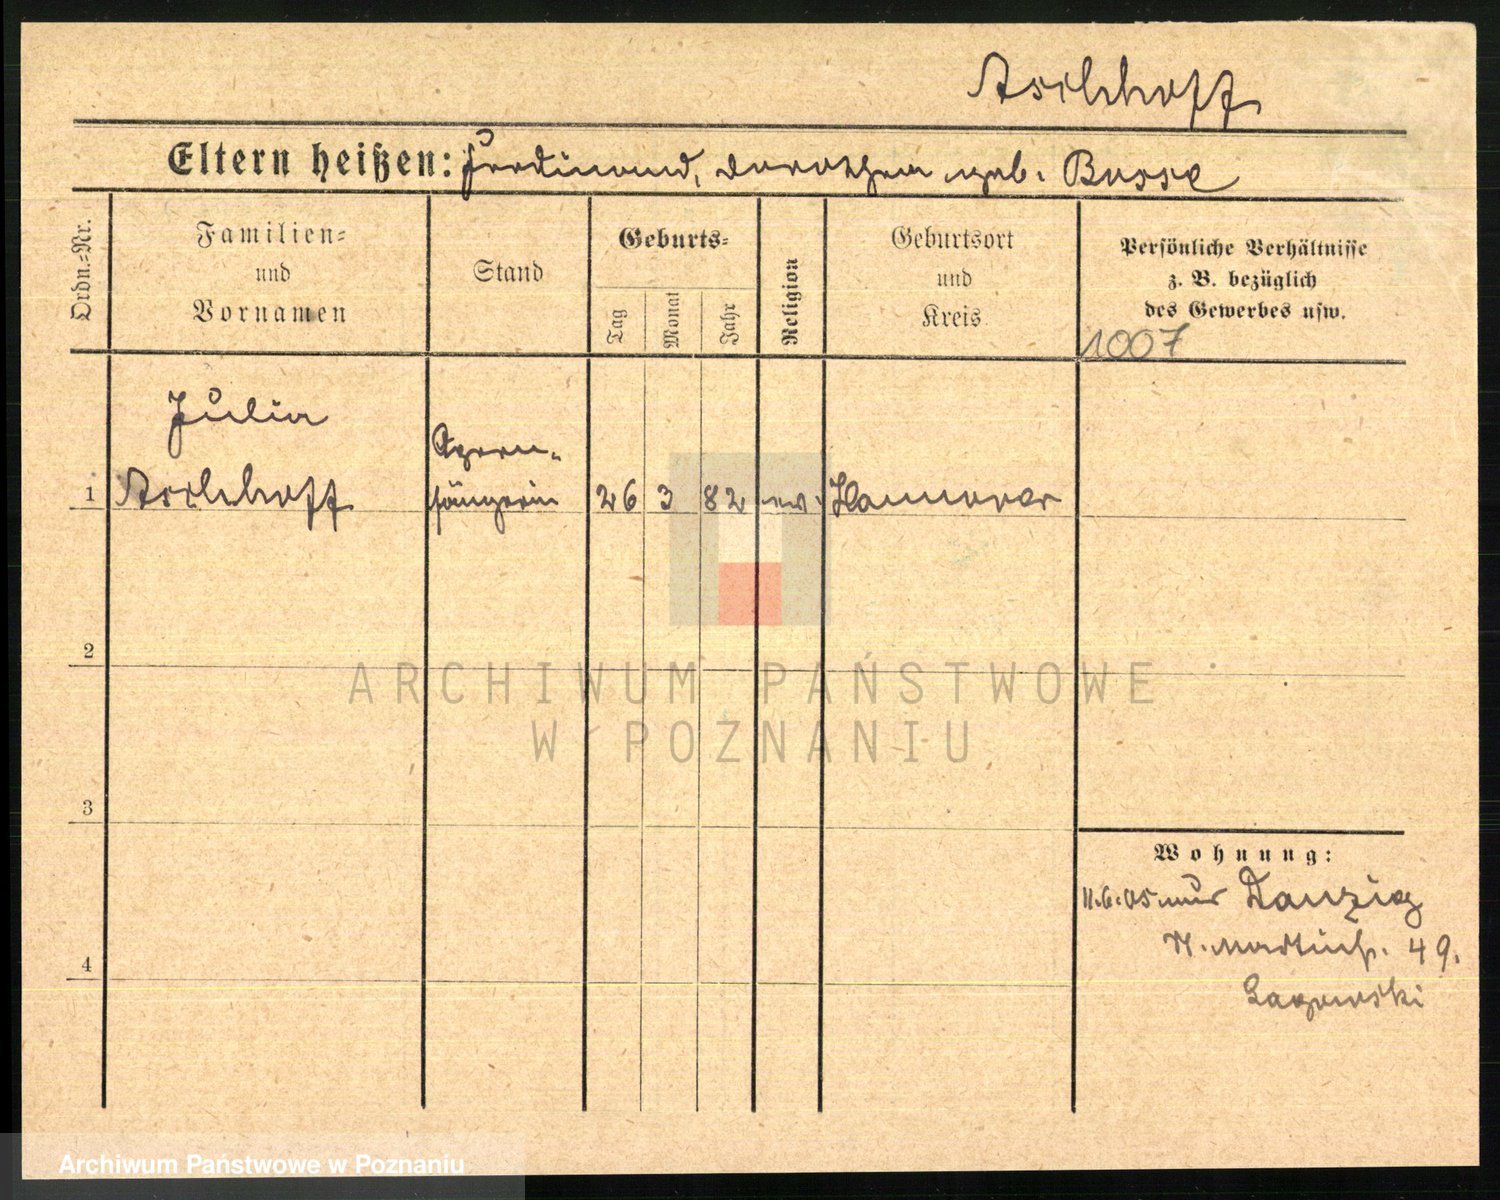 Aschhoff
Eltern heißen: Ferdinand, Dorothea geb. Busse
Ordn.-Nr.
Familien-
und
Vornamen
Stand
Geburts-
Tag
Monat
Jahr
Religion
Geburtsort
und
Kreis
Persönliche Verhältnisse
z. B. bezüglich
des Gewerbes usw.
1007
Julia
Opern-
1 Aschhoff sängerin 26 3 82 ev. Hannover
2
3
4
Wohnung:
11.6.05 nur Danzig
St. Martinstr. 49.
ARCHIWUM PAŃSTWOWE
W POZNANIU
Archiwum Państwowe w Poznaniu